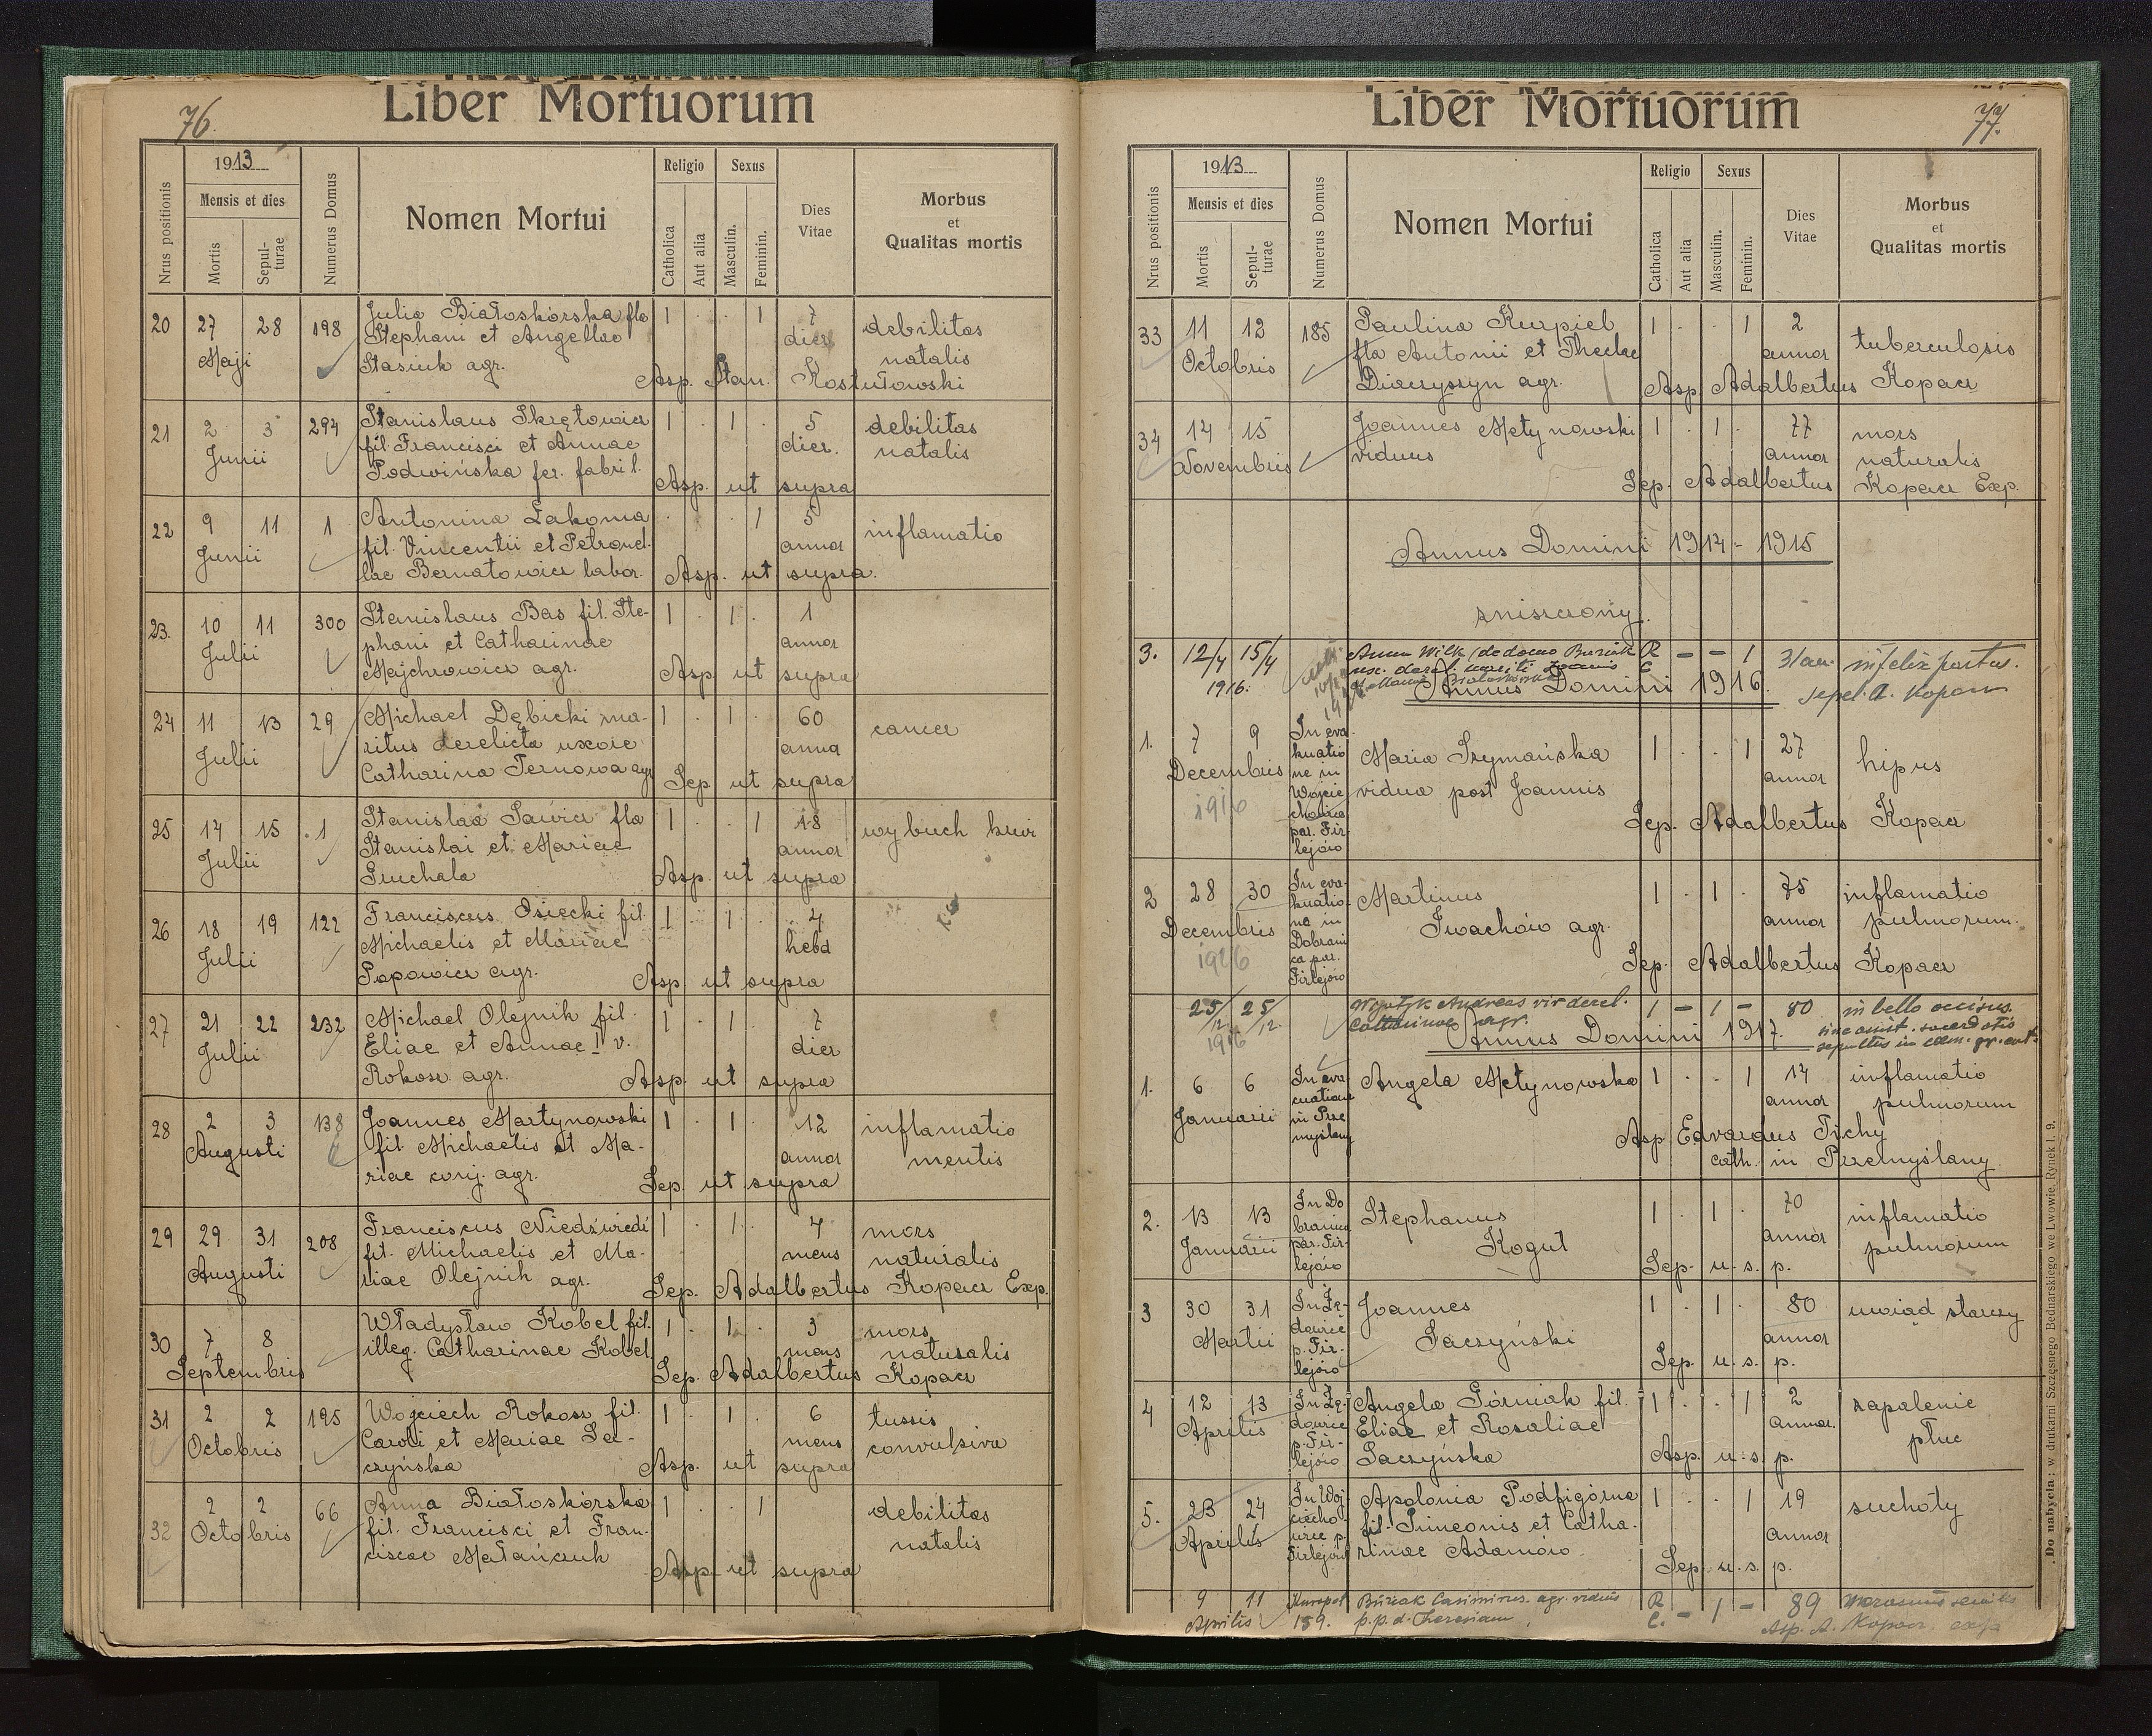 76.
Liber Mortuorum
Nrus positionis
1913
Mensis et dies
Mortis
Sepulturae
Numerus Domus
Nomen Mortui
Religio
Catholica
Aut alia
Sexus
Masculin.
Feminin.
Dies Vitae
Morbus et Qualitas mortis
20 27 28 198 Julia Białoskórska fla 1 . . 1 7 debilitas
Maji Stephani et Angellae dier natalis
Stasiuk agr. Asp. Stan. Kostutowski
21 2 3 294 Stanislaus Skrętowicz 1 . 1 . 5 debilitas
Junii fil. Francisci et Annae dier. natalis
Podwińska fer. fabril. Asp. ut supra
22 9 11 1 Antonina Łakoma . . 1 5 inflamatio
Junii fil. Vincentii et Petronel- annor
lae Bernatowicz labor. Asp. ut supra.
23. 10 11 300 Stanislaus Bas fil. Ste- 1 . 1 . 1
Julii phani et Catharinae annor
Majchrowicz agr. Asp ut supra
24 11 13 29 Michael Dębicki ma- 1 . 1 . 60 cancer
Julii ritus derelicta uxore annor
Catharina Ternowa agr Sep ut supra
25 14 15 1 Stanislaa Sawicz fla 1 . . 1 18 wybuch krwi
Julii Stanislai et Mariae annor
Gruchala Asp. ut supra
26 18 19 122 Franciscus Osiecki fil. 1 . 1 . 4
Julii Michaelis et Mariae hebd
Popowicz agr. Asp. ut supra
27 21 22 232 Michael Olejnik fil. 1 . 1 . 7
Julii Eliae et Annae I v. dier
Rokosz agr. Asp. ut supra
28 2 3 138 Joannes Martynowski 1 . 1 . 12 inflamatio
Augusti fil. Michaelis et Ma- annor mentis
riae conj. agr. Sep. ut supra
29 29 31 208 Franciscus Niedźwiedź 1 . 1 . 4 mors
Augusti fil. Michaelis et Ma- mens naturalis
riae Olejnik agr. Sep. Adalbertus Kopacz Exp.
30 7 8 Władysław Kobel fil. 1 . 1 . 3 mors
Septembris illeg. Catharinae Kobel mens naturalis
Sep. Adalbertus Kopacz
31 2 2 195 Wojciech Rokosz fil. 1 . 1 . 6 tussis
Octobris Caroli et Mariae Le- mens convulsiva
czyńska Asp. ut supra
32 2 2 66 Anna Białoskórska 1 . . 1 debilitas
Octobris fil. Francisci et Fran- natalis
ciscae Matańczuk Asp. ut supra
77.
Liber Mortuorum
Nrus positionis
1913
Mensis et dies
Mortis
Sepulturae
Numerus Domus
Nomen Mortui
Religio
Catholica
Aut alia
Sexus
Masculin.
Feminin.
Dies Vitae
Morbus et Qualitas mortis
33 11 12 185 Paulina Kurpiel 1 . . 1 2 tuberculosis
Octobris fla Antonii et Theclae annor
Diaczyszyn agr. Asp. Adalbertus Kopacz
34 14 15 Joannes Młynowski 1 . 1 . 77 mors
Novembris viduus annor naturalis
Sep. Adalbertus Kopacz Exp.
Annus Domini 1914 - 1915
zniszczony.
3. 12/4 15/4 Anna Wilk (de domo Buriak R - - 1 31 an. infelix partus.
1916. ux. derel. mariti Joannis C sepel. A. Kopacz
Annus Domini 1916
1. 7 9 In eva- Maria Szymańska 1 . . 1 27 hipus
Decembris kuatio ne in vidua post Joannis annor
1916 Wojcie chowice par. Fir- lejów Sep. Adalbertus Kopacz
2 28 30 In eva- Martinus 1 . 1 . 75 inflamatio
Decembris kuatio- ne in Iwachów agr. annor pulmorum.
1916 Dobrani ca par. Firlejów Sep. Adalbertus Kopacz
25/12 25/12 Wojtyk Andreas vir derel. 1 - 1 - 80 in bello occisus.
1916 Catharinae agr. sine assist. sacerdotis
sepultus in coem. gr. cat.
Annus Domini 1917.
1. 6 6 In eva Angela Młynowska 1 . . 1 14 inflamatio
Januarii cuatione in Prze myślany annor pulmorum
Asp Edvardus Tichy
cath. in Przemyślany
2. 13 13 In Do Stephanus 1 . 1 . 70 inflamatio
Januarii branica par. Fir- lejów Kogut annor pulmorum
Sep. u. s. p.
3 30 31 In Łę- Joannes 1 . 1 . 80 uwiąd starczy
Martii dowice p. Fir- lejów Saczyński annor
Sep. u. s. p.
4 12 13 In Łę- Angela Górniak fil. 1 . . 1 2 zapalenie
Aprilis dowice p. Fir- lejów Eliae et Rosaliae annor. płuc
Saczyńska Asp. u. s. p.
5. 23 24 In Woj- Apolonia Podfigórna 1 . . 1 19 suchoty
Aprilis ciecho- wice p. Firlejów fil. Simeonis et Catha- annor
rinae Adamów Sep. u. s. p.
9 11 Kuropat Buriak Casimirus agr. viduus R - 1 - 89 Marasmus senilis
Aprilis 189. p. p. d. Theresiam C. Asp. A. Kopacz exp
Do nabycia: w drukarni Szczęsnego Bednarskiego we Lwowie, Rynek l. 9.